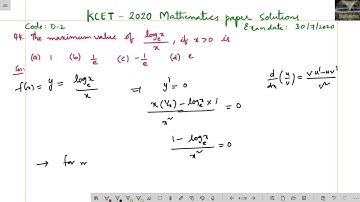 KCET - 2020 Mathematics paper solutions
Code: D-2
Exam date: 30/7/2020
44. The maximum value of log_e x / x, if x > 0 is
(a) 1 (b) 1/e (c) -1/e (d) e
Sol:
f(x) = y = log_e x / x ⇒ y' = 0
d/dx (u/v) = (v u' - u v') / v²
(x (1/x) - log_e x × 1) / x² = 0
(1 - log_e x) / x² = 0
→ for m